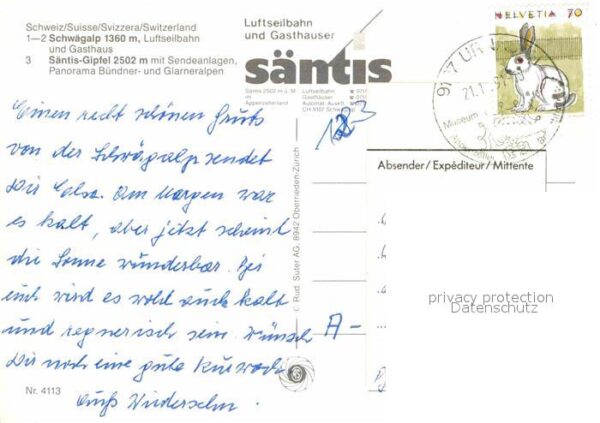 Schweiz/Suisse/Svizzera/Switzerland
1—2 Schwägalp 1360 m, Luftseilbahn
und Gasthaus
3 Säntis-Gipfel 2502 m mit Sendeanlagen,
Panorama Bündner- und Glarneralpen
Luftseilbahn
und Gasthäuser
säntis
Säntis 2502 m ü. M
Appenzellerland
Luftseilbahn
Gasthäuser
Automat. Ausk.
CH-9107 Schwäg
HELVETIA 70
9107 UR
21.1
Museum
Einen recht schönen Gruss
von der Schwägalp sendet
Dir Elsa. Am Morgen war
es kalt, aber jetzt scheint
die Sonne wunderbar. Bei
euch wird es wohl auch kalt
und regnerisch sein. Wünsch
Dir noch eine gute Kurwoche
Auf Wiedersehn.
Nr. 4113
© Rud. Suter AG, 8942 Oberrieden-Zürich
Absender/Expéditeur/Mittente
A-
privacy protection
Datenschutz